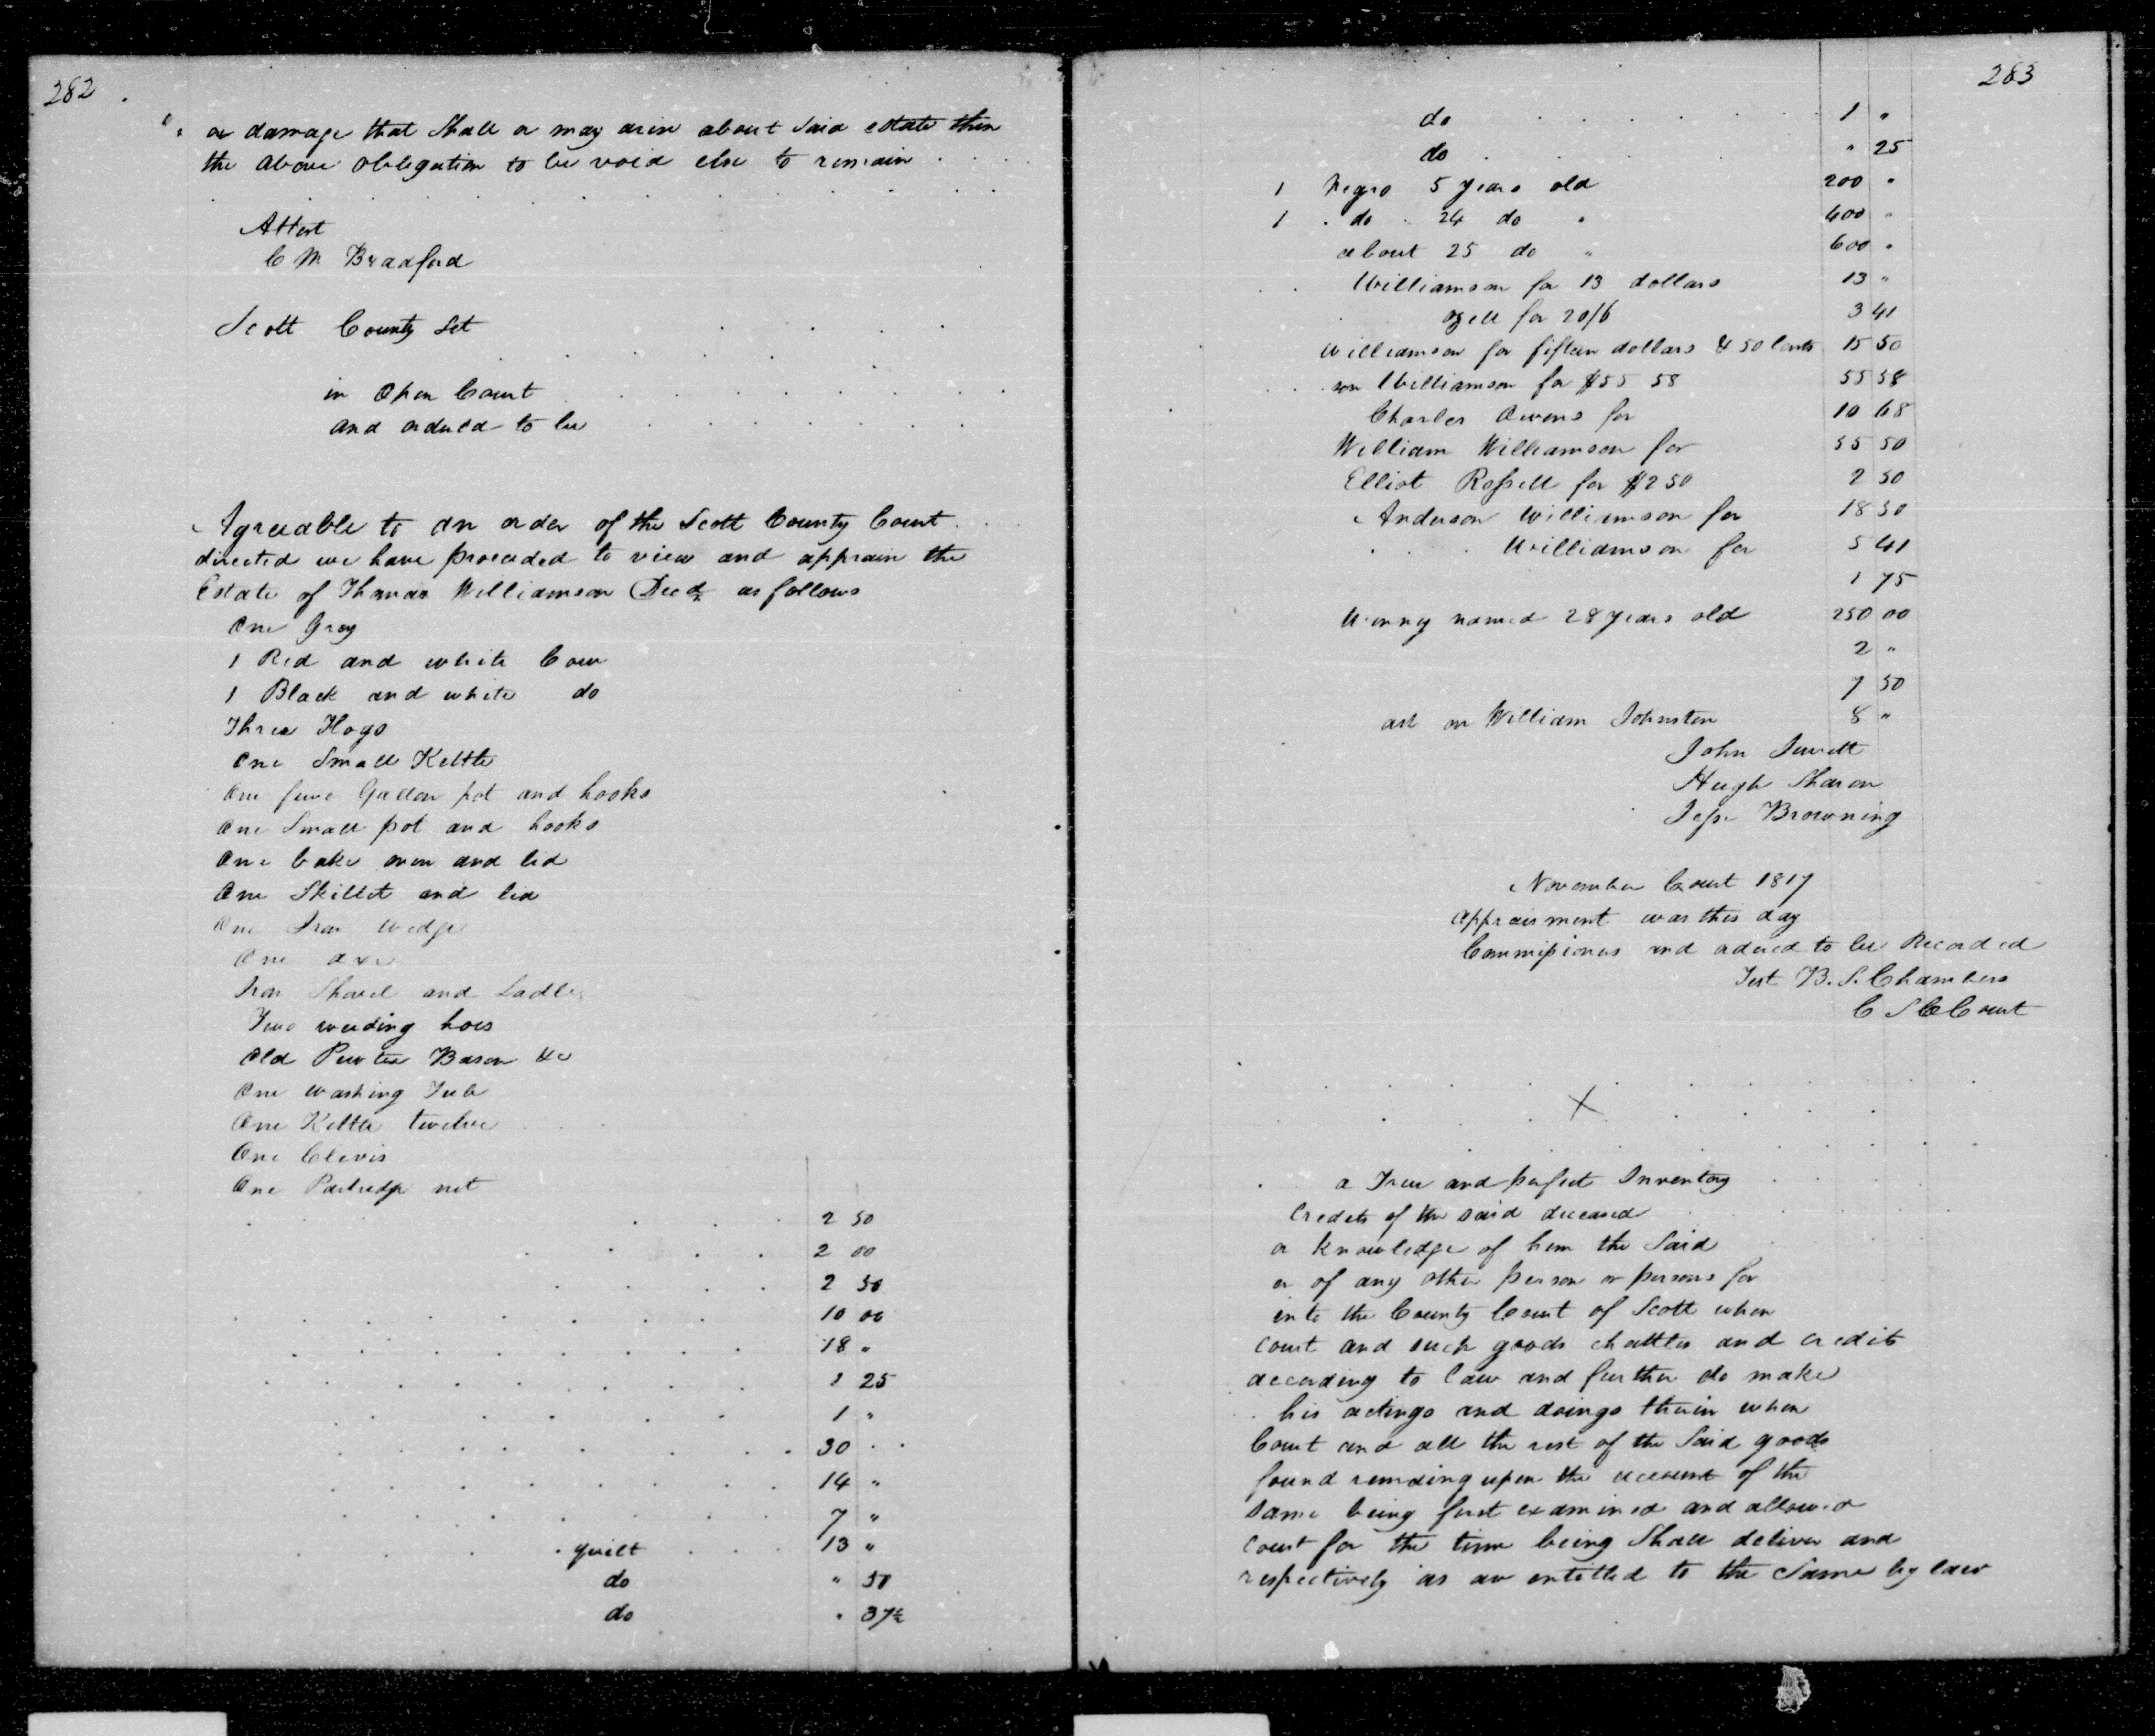 282
or damage that Shall or may arise about Said estate then
the above obligation to be void else to remain
Attest
C M Bradford
Scott County Sct
in Open Court
and ordered to be
Agreeable to an order of the Scott County Court
directed we have proceeded to view and appraise the
Estate of Thomas Williamson Decd as follows
One Gray
1 Red and white Cow
1 Black and white do
Three Hogs
One Small Kettle
One five Gallon pot and hooks
One Small pot and hooks
One bake oven and lid
One Skillet and lid
One Iron wedge
One axe
Iron Shovel and Ladle
Two weeding hoes
Old Pewter Bason &c
One washing Tub
One Kettle twelve
One Clevis
One Partridge net
2 50
2 00
2 50
10 00
18 "
1 25
1 "
30
14 "
7 "
quilt 13 "
do " 50
do " 37½
283
do 1 "
do " 25
1 Negro 5 years old 200 "
1 do 24 do " 400 "
about 25 do " 600 "
Williamson for 13 dollars 13 "
ozell for 20/6 3 41
Williamson for fifteen dollars & 50 Cents 15 50
son Williamson for $55 58 55 58
Charles Owens for 10 68
William Williamson for 55 50
Elliot Rossell for $2 50 2 50
Anderson Williamson for 18 50
Williamson for 5 41
1 75
Winny named 28 years old 250 00
2 "
7 50
ash on William Johnston 8 "
John Jewett
Hugh Sharon
Jesse Browning
November Court 1817
appraisment was this day
Commissioners and ordered to be Recorded
Test B. S. Chambers
C S C Court
X
a True and perfect Inventory
Credits of the said deceased
or knowledge of him the Said
or of any other person or persons for
into the County Court of Scott when
Court and such goods chattles and credits
according to law and further do make
his actings and doings therein when
Court and all the rest of the Said goods
found remaing upon the account of the
Same being first examined and allowed
Court for the time being Shall deliver and
respectively as are entitled to the Same by law